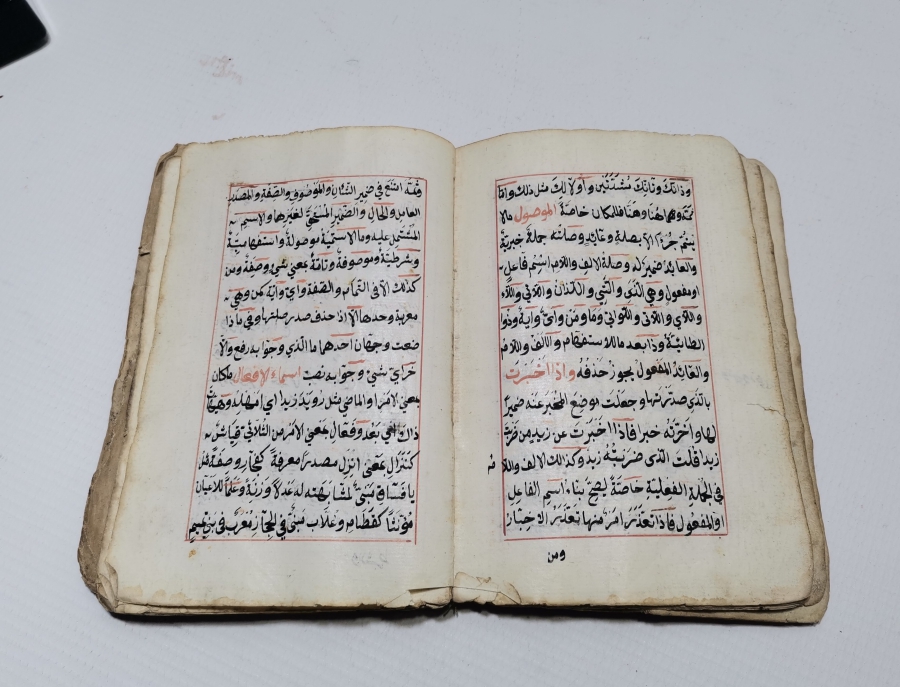 وذانك وتانك مشددتين واولالك مثل ذلك واما
ثمة وهنا وهنا فللمكان خاصة الموصول مالا
يتم جزءا الا بصلة وعائد وصلته جملة خبرية
والعائد ضمير له وصلة الالف واللام اسم فاعل
او مفعول وهي الذي والتي واللذان واللاتي واللاء
واللاي واللاتي واللواتي وما ومن واي واية وذوا
الطائية وذا بعد ما للاستفهام والالف واللام
والعائد المفعول يجوز حذفه واذا اخبرت
بالذي صدرتها وجعلت موضع المخبر عنه ضميرا
لها واخرته خبرا فاذا اخبرت عن زيد من ضربت
زيدا قلت الذي ضربته زيد وكذالك الالف واللام
في الجملة الفعلية خاصة ليصح بناء اسم الفاعل
او المفعول فاذا تعذر امر منها تعذر الاخبار
ومن
ومن ثمة امتنع في ضمير الشان والموصوف والصفة والمصدر
العامل والحال والضمير المستحق لغيرها والاسم
المشتمل عليه وما الاسمية موصولة واستفهامية
وشرطية وموصوفة وتامة بمعنى شيء وصفة ومن
كذلك الا في التمام والصفة واي واية كمن وهي
معربة وحدها الا اذا حذف صدر صلتها وفي ماذا
صنعت وجهان احدهما ما الذي وجوابه رفع والا
خر اي شيء وجوابه نصب اسماء الافعال ما كان
بمعنى الامر او الماضي مثل رويد زيدا اي امهله وهيهات
ذاك اي بعد وفعال بمعنى الامر من الثلاثي قياس
كنزال بمعنى انزل مصدرا معرفة كفجار وصفة مثل
يا فساق مبني لمشابهته له عدلا وزنة وعلما للاعيان
مؤنثا كقطام وغلاب مبني في الحجاز معرب في بني تميم